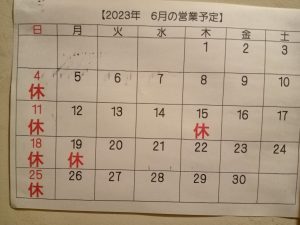 【2023年 6月の営業予定】
日 月 火 水 木 金 土
1 2 3
4 5 6 7 8 9 10
休
11 12 13 14 15 16 17
休 休
18 19 20 21 22 23 24
休 休
25 26 27 28 29 30
休